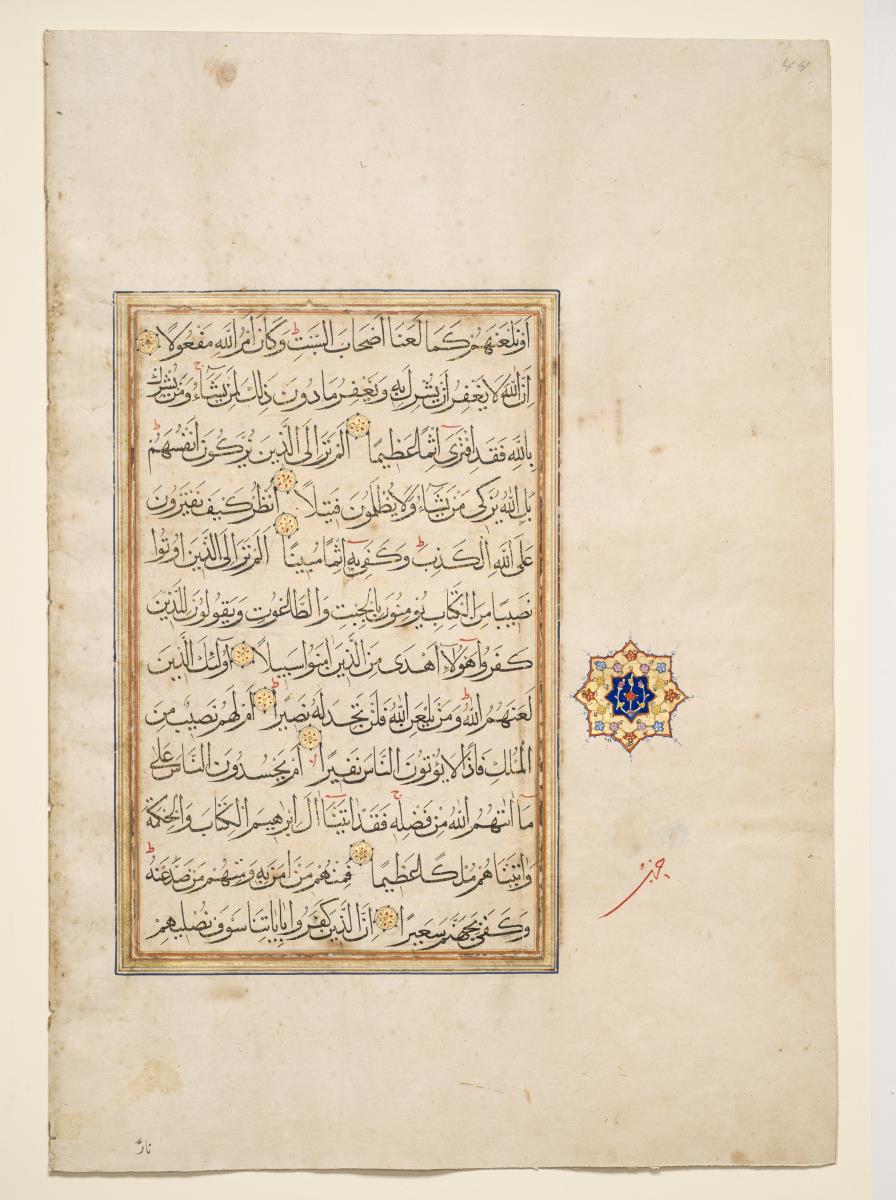 أَوْ نَلْعَنَهُمْ كَمَا لَعَنَّا أَصْحَابَ السَّبْتِ ط وَكَانَ أَمْرُ اللَّهِ مَفْعُولًا
إِنَّ اللَّهَ لَا يَغْفِرُ أَنْ يُشْرَكَ بِهِ وَيَغْفِرُ مَا دُونَ ذَلِكَ لِمَنْ يَشَاءُ ج وَمَنْ يُشْرِكْ
بِاللَّهِ فَقَدِ افْتَرَى إِثْمًا عَظِيمًا أَلَمْ تَرَ إِلَى الَّذِينَ يُزَكُّونَ أَنْفُسَهُمْ ط
بَلِ اللَّهُ يُزَكِّي مَنْ يَشَاءُ وَلَا يُظْلَمُونَ فَتِيلًا أُنْظُرْ كَيْفَ يَفْتَرُونَ
عَلَى اللَّهِ الْكَذِبَ ط وَكَفَى بِهِ إِثْمًا مُبِينًا أَلَمْ تَرَ إِلَى الَّذِينَ أُوتُوا
نَصِيبًا مِنَ الْكِتَابِ يُؤْمِنُونَ بِالْجِبْتِ وَالطَّاغُوتِ وَيَقُولُونَ لِلَّذِينَ
كَفَرُوا هَؤُلَاءِ أَهْدَى مِنَ الَّذِينَ آمَنُوا سَبِيلًا أُولَئِكَ الَّذِينَ
لَعَنَهُمُ اللَّهُ ط وَمَنْ يَلْعَنِ اللَّهُ فَلَنْ تَجِدَ لَهُ نَصِيرًا ط أَمْ لَهُمْ نَصِيبٌ مِنَ
الْمُلْكِ فَإِذًا لَا يُؤْتُونَ النَّاسَ نَقِيرًا لا أَمْ يَحْسُدُونَ النَّاسَ عَلَى
مَا آتَاهُمُ اللَّهُ مِنْ فَضْلِهِ ج فَقَدْ آتَيْنَا آلَ إِبْرَاهِيمَ الْكِتَابَ وَالْحِكْمَةَ
وَآتَيْنَاهُمْ مُلْكًا عَظِيمًا فَمِنْهُمْ مَنْ آمَنَ بِهِ وَمِنْهُمْ مَنْ صَدَّ عَنْهُ ط
وَكَفَى بِجَهَنَّمَ سَعِيرًا إِنَّ الَّذِينَ كَفَرُوا بِآيَاتِنَا سَوْفَ نُصْلِيهِمْ
حزب
نارًا